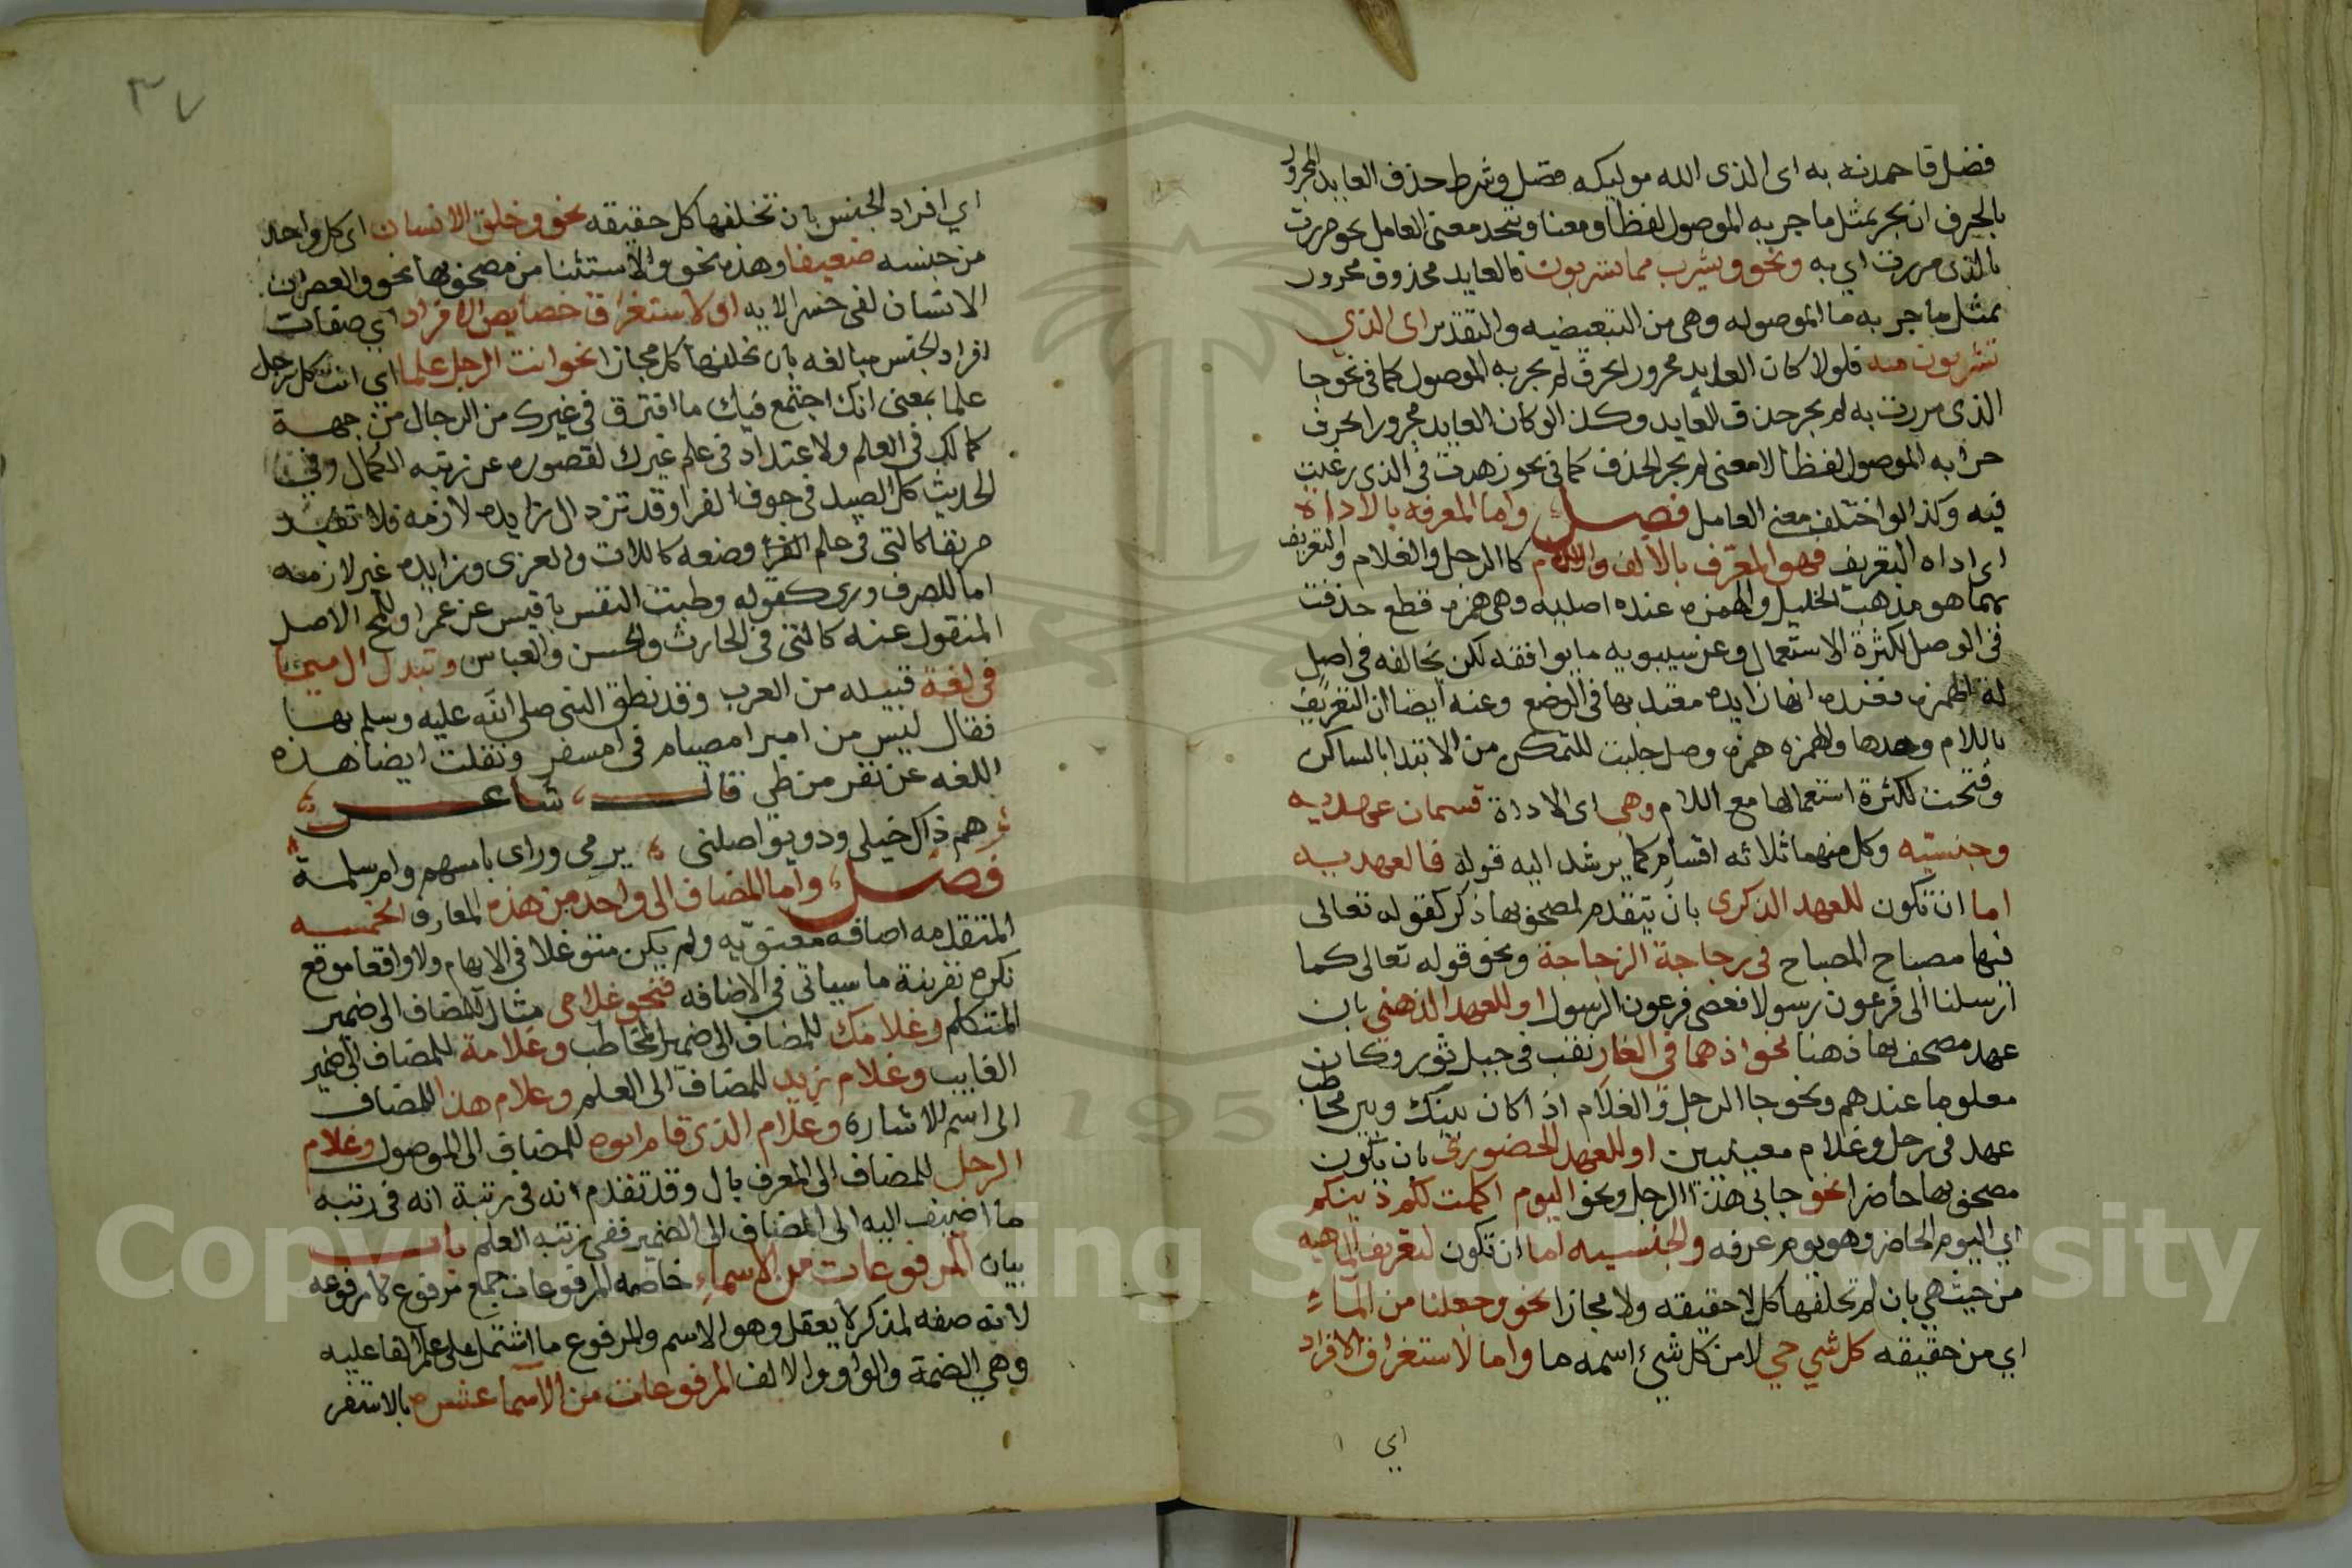 فضل فاحمدنه به اى الذى الله موليكه فضل وشرط حذف العايد المجرور
بالحرف ان يجر بمثل ما جر به الموصول لفظا ومعنا ويتحد معنى العامل نحو مررت
بالذى مررت اي به ونحو ويشرب مما تشربون فالعايد محذوف مجرور
بمثل ما جر به ما الموصوله وهى من التبعيضيه والتقدير اى الذي
تشربون منه فلولا كان العايد مجرور الحرف لم يجر به الموصول كما فى نحو جا
الذى مررت به لم يجز حذف العايد وكذا لو كان العايد مجرورا بحرف
جر به الموصول لفظا لا معنى لم يجز الحذف كما فى نحو زهدت فى الذى رغبت
فيه وكذا لو اختلف معنى العامل فصل واما المعرفه بالاداة
اى اداه التعريف فهو المعرف بالالف واللام كالرجل والغلام والتعريف
بهما هو مذهب الخليل والهمزه عنده اصليه وهى همزه قطع حذفت
فى الوصل لكثرة الاستعمال وعن سيبويه ما يوافقه لكن يخالفه فى اصل
له الهمزه فعنده انها زايده معتد بها فى الوضع وعنه ايضا ان التعريف
باللام وحدها والهمزه همزه وصل جلبت للتمكن من الابتدا بالساكن
وفتحت لكثرة استعمالها مع اللام وهي اى الاداة قسمان عهديه
وجنسيه وكل منهما ثلاثه اقسام كما يرشد اليه قوله فالعهديه
اما ان تكون للعهد الذكرى بان يتقدم لمصحوبها ذكر كقوله تعالى
فيها مصباح المصباح فى زجاجة الزجاجة ونحو قوله تعالى كما
ارسلنا الى فرعون رسولا فعصى فرعون الرسول او للعهد الذهني بان
عهد مصحوبها ذهنا نحو اذ هما في الغار نقب فى جبل ثور وكان
معلوما عندهم ونحو جا الرجل والغلام اذا كان بينك وبين مخاطب
عهد فى رجل وغلام معينين او للعهد الحضوري بان يكون
مصحوبها حاضرا نحو جانى هذا الرجل ونحو اليوم اكملت لكم دينكم
اي اليوم الحاضر وهو يوم عرفه والجنسيه اما ان تكون لتعريف الماهيه
من حيث هي بان لم تخلفها كل لا حقيقه ولا مجازا نحو وجعلنا من الماء
اي من حقيقه كل شي حي لا من كل شئ اسمه ما واما لاستغراق الافراد
اي
٣٧
اي افراد الجنس بان تخلفها كل حقيقه نحو وخلق الانسان اى كل واحد
من جنسه ضعيفا وهذه نحو والاستثنا من مصحوبها نحو والعصر ان
الانسان لفى خسر الايه او لاستغراق خصايص الافراد اي صفات
افراد الجنس مبالغه بان تخلفها كل مجازا نحو انت الرجل علما اي انت كل رجل
علما بمعنى انك اجتمع فيك ما افترق فى غيرك من الرجال من جهة
كمالك فى العلم ولا اعتداد فى علم غيرك لقصوره عن رتبه الكمال وفى
الحديث كل الصيد فى جوف الفرا وقد تزد ال زايده لازمه فلا تفيد
تعريفا كالتى فى علم وضعه كاللات والعزى وزايده غير لازمه
اما للصرف ورى كقوله وطبت النفس يا قيس عن عمرا وللمح الاصل
المنقول عنه كالتى فى الحارث والحسن والعباس وتبدل ال ميما
فى لغة قبيله من العرب وقد نطق النبى صلى الله عليه وسلم بها
فقال ليس من امبر امصيام فى امسفر ونقلت ايضا هذه
اللغه عن نفر من طي قال شاعر
هم ذاك خيلى وذو يواصلنى يرمى وراى بامسهم وامسلمة
فصل واما المضاف الى واحد من هذه المعارف الخمسه
المتقدمه اضافه معنويه ولم يكن متوغلا فى الابهام ولا واقعا موقع
نكره بقرينة ما سياتى فى الاضافه فنحو غلامى مثال للمضاف الى ضمير
المتكلم وغلامك للمضاف الى ضمير المخاطب وغلامة للمضاف الى ضمير
الغايب وغلام زيد للمضاف الى العلم وغلام هذا للمضاف
الى اسم الاشارة وغلام الذى قام ابوه للمضاف الى الموصول وغلام
الرجل للمضاف الى المعرف بال وقد تقدم انه فى رتبة انه فى رتبه
ما اضيف اليه الى المضاف الى الضمير ففى رتبه العلم باب
بيان المرفوعات من الاسماء خاصه المرفوعات جمع مرفوع لا مرفوعه
لانه صفه لمذكر لا يعقل وهو الاسم والمرفوع ما اشتمل على علم العاعليه
وهي الضمة والواو والالف المرفوعات من الاسما عشره بالاستقر